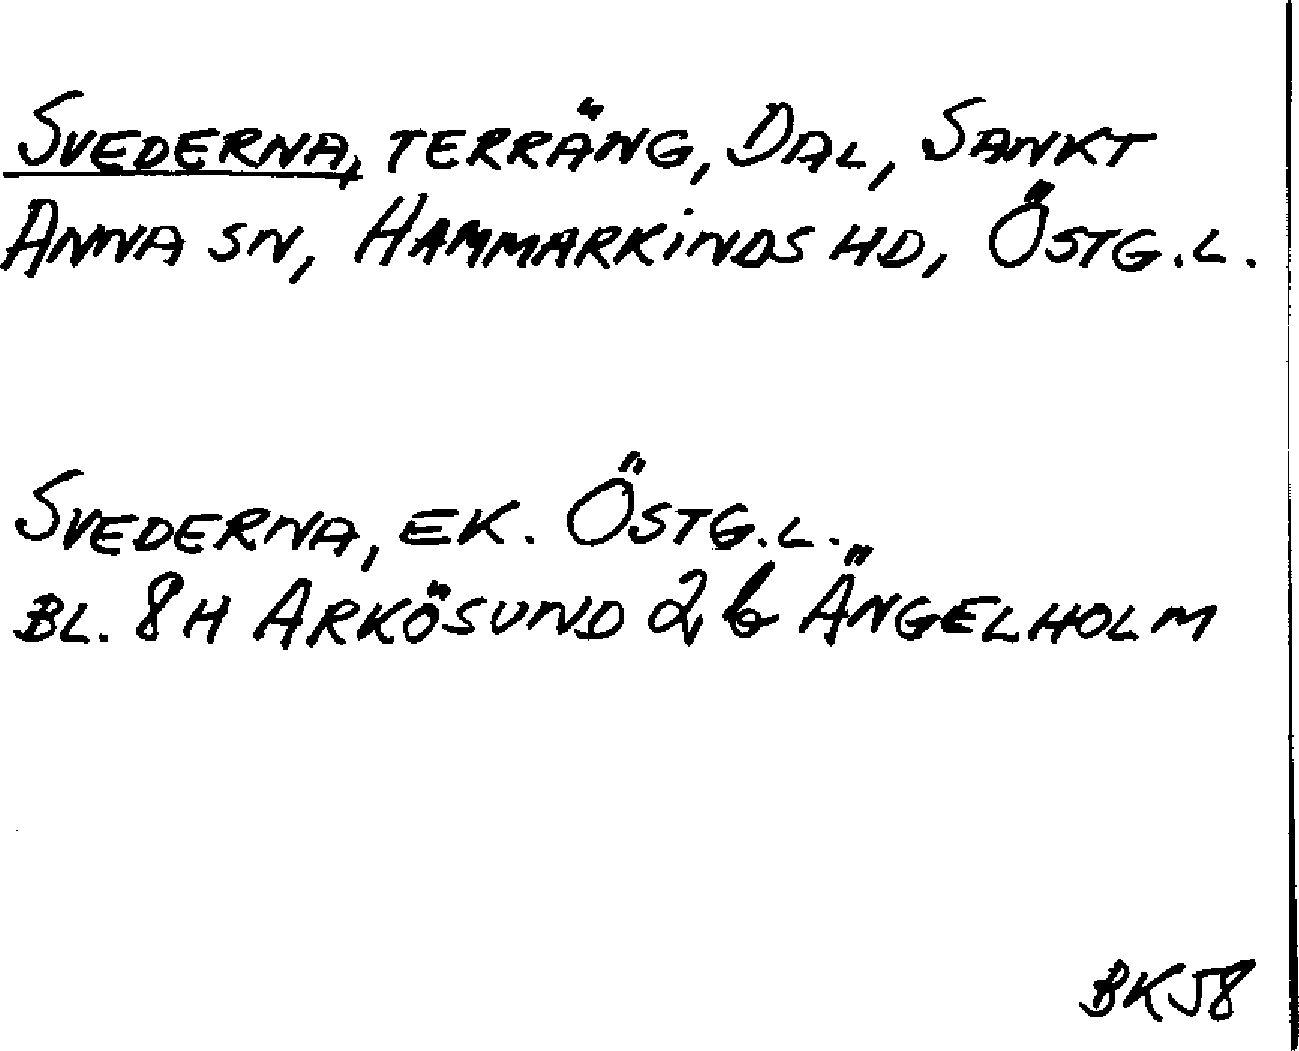 SVEDERNA, TERRÄNG, DAL, SANKT
ANNA SN, HAMMARKINDS HD, ÖSTG.L.
SVEDERNA, EK. ÖSTG.L.
BL. 8H ARKÖSUND 2b ÄNGELHOLM
BK58